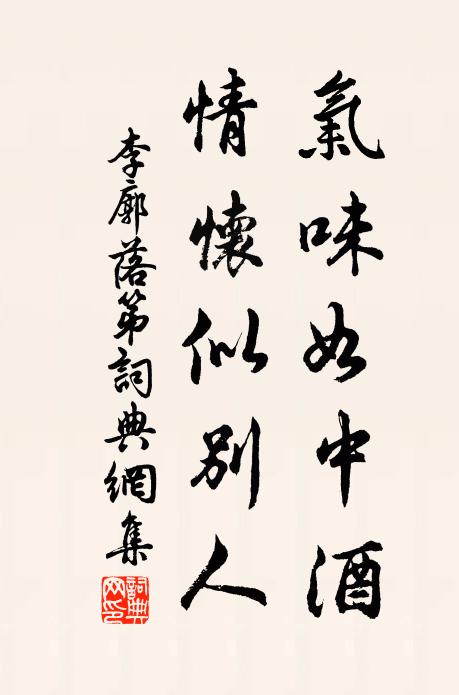 氣味如中酒
情懷似別人
李廓落第詞典網集
詞典网印